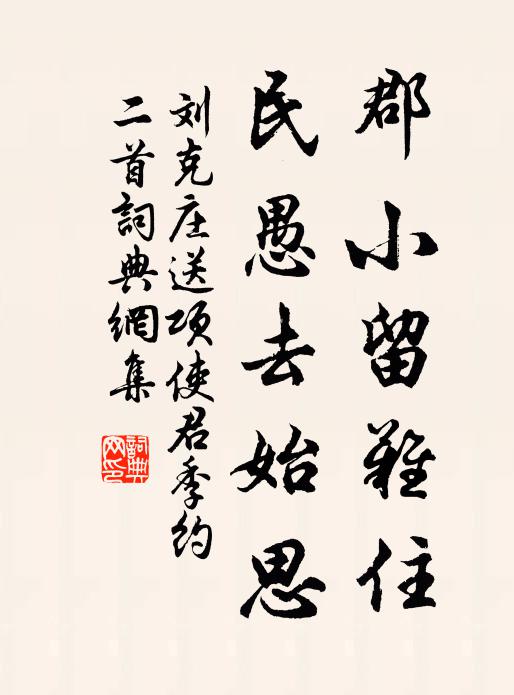 郡小留難住
民愚去始思
刘克庄送项使君季约
二首詞典網集
詞典网印